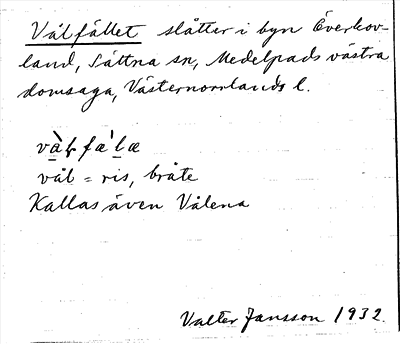 Vålfället slåtter i byn Överkov-
land, Sättna sn, Medelpads västra
domsaga, Västernorrlands l.
vål = ris, bråte
Kallas även Vålena
Valter Jansson 1932.